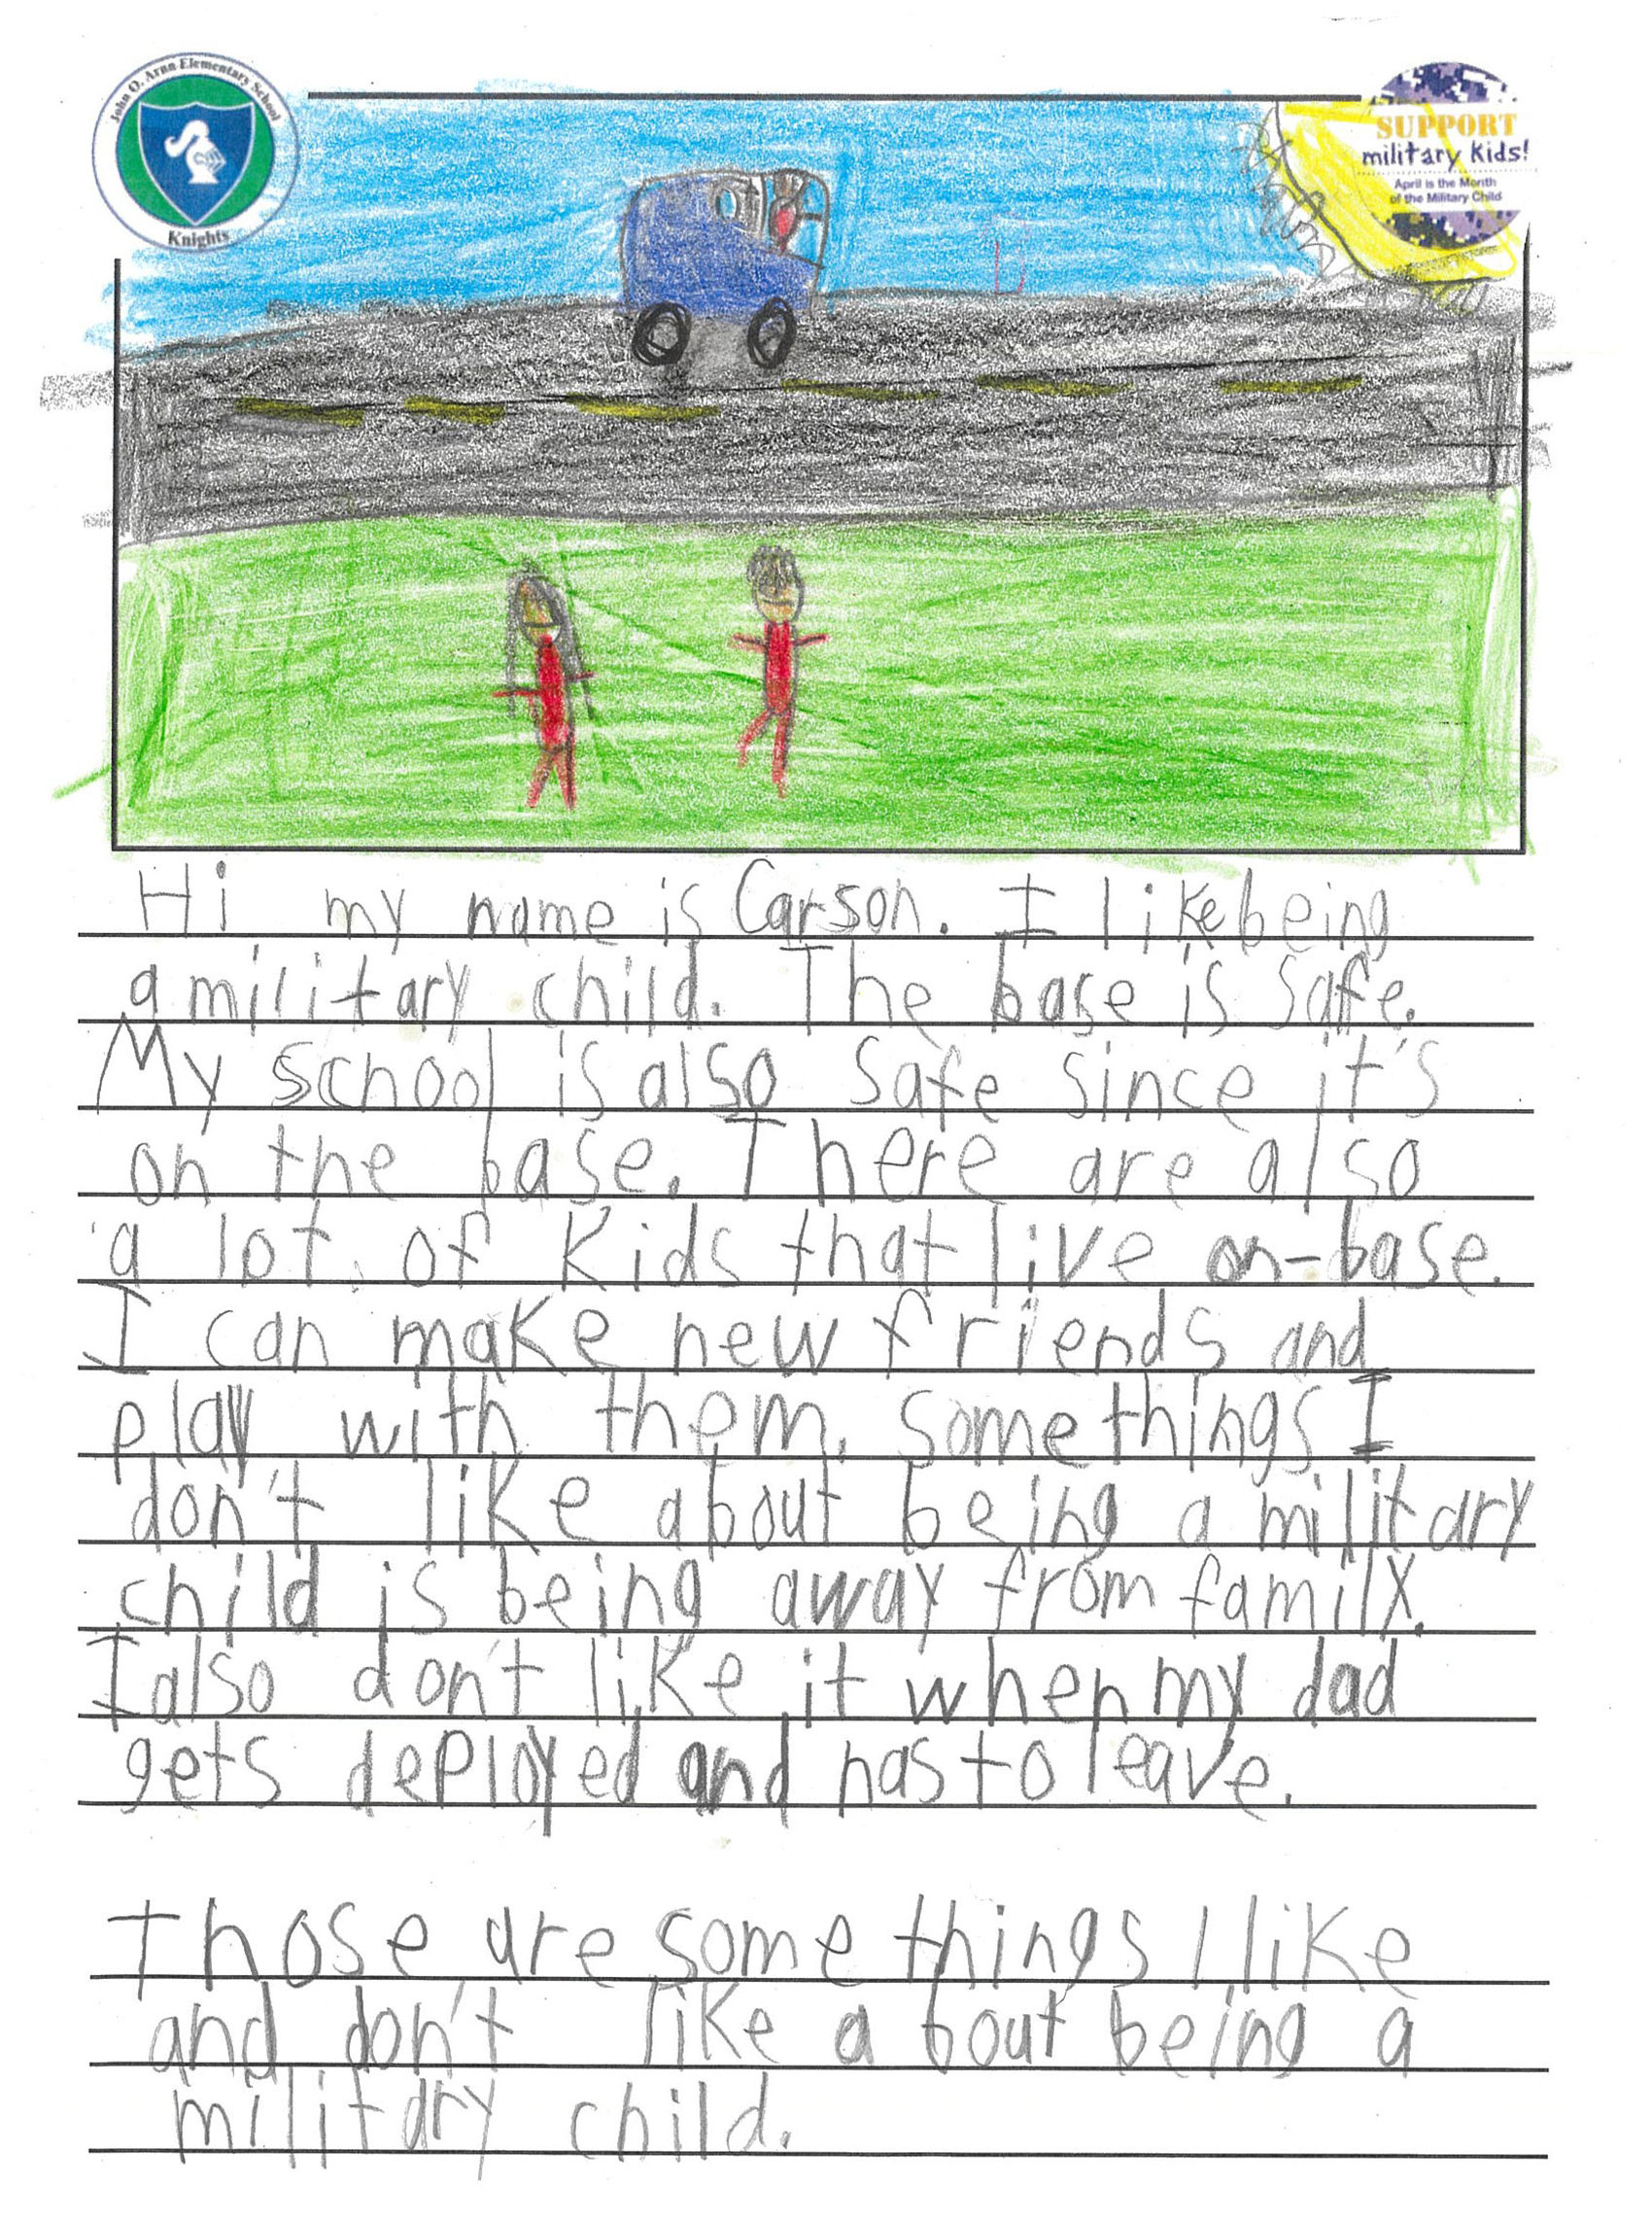 John O. Arnn Elementary School
Knights
SUPPORT
military kids!
April is the Month
of the Military Child
Hi my name is Carson. I like being
a military child. The base is safe.
My school is also safe since it's
on the base. There are also
a lot of kids that live on-base.
I can make new friends and
play with them. some things I
don't like about being a military
child is being away from family.
I also don't like it when my dad
gets deployed and has to leave.
Those are some things I like
and don't like a bout being a
military child.